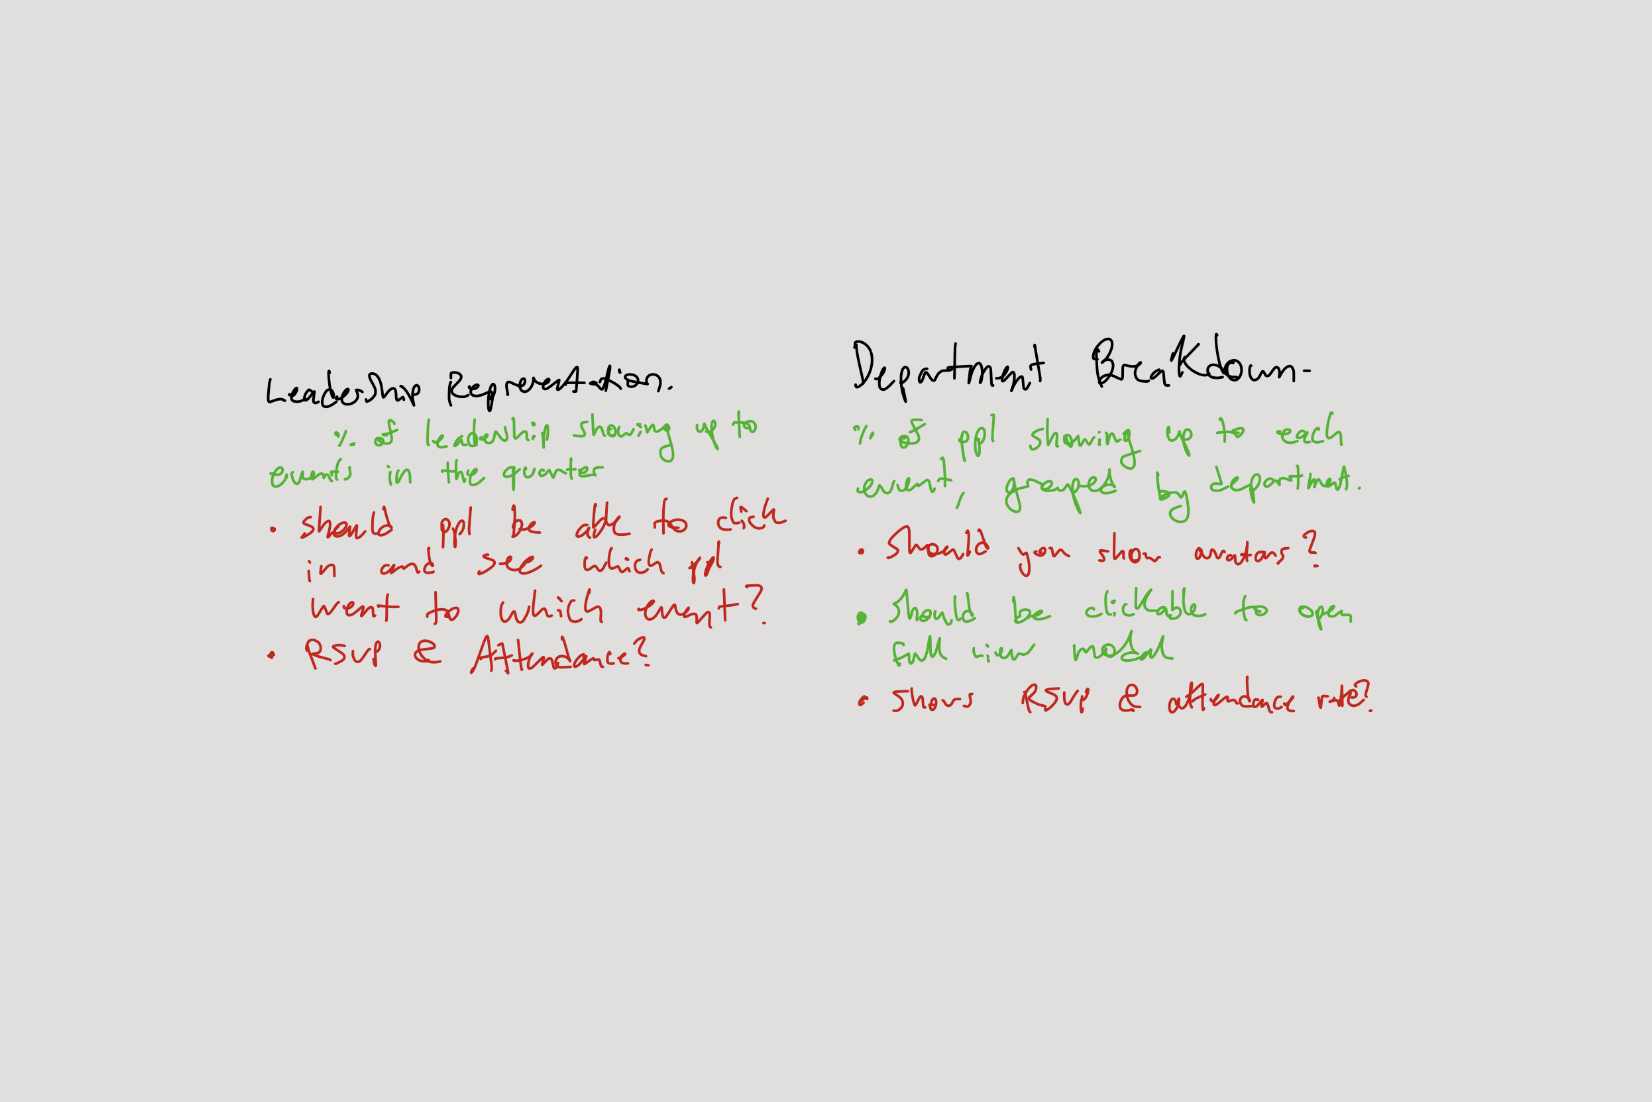 Leadership Representation.
% of leadership showing up to
events in the quarter
• should ppl be able to click
in and see which ppl
went to which event?
• RSVP & Attendance?
Department Breakdown-
% of ppl showing up to each
event, grouped by department.
• Should you show avatars?
• Should be clickable to open
full view modal
• shows RSVP & attendance rate?